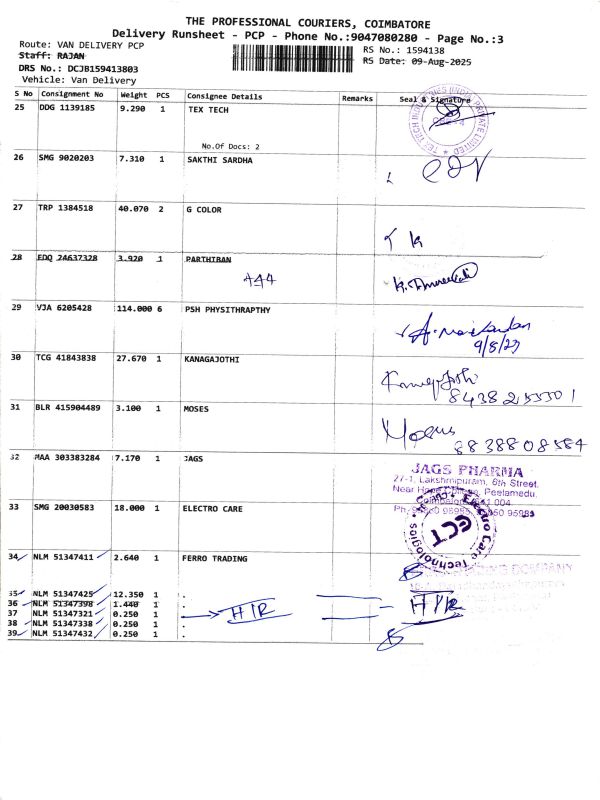 THE PROFESSIONAL COURIERS, COIMBATORE
Delivery Runsheet - PCP - Phone No.:9047080280 - Page No.:3
Route: VAN DELIVERY PCP
RS No.: 1594138
Staff: RAJAN
RS Date: 09-Aug-2025
DRS No.: DCJB159413803
Vehicle: Van Delivery
S No Consignment No Weight PCS Consignee Details Remarks Seal & Signature
25 DDG 1139185 9.290 1 TEX TECH
No.Of Docs: 2
26 SMG 9020203 7.310 1 SAKTHI SARDHA
27 TRP 1384518 40.070 2 G COLOR
28 EDQ 24637328 3.920 1 PARTHIBAN
A44
29 VJA 6205428 114.000 6 PSH PHYSITHRAPTHY
9/8/25
30 TCG 41843838 27.670 1 KANAGAJOTHI
8438255501
31 BLR 415904489 3.100 1 MOSES
Moses
8838808584
32 MAA 303383284 7.170 1 JAGS
JAGS PHARMA
27-1, Lakshmipuram, 6th Street,
Near Peelamedu,
33 SMG 20030583 18.000 1 ELECTRO CARE
Electro Care Technologies
ECT
34 NLM 51347411 2.640 1 FERRO TRADING
35 NLM 51347425 12.350 1 .
36 NLM 51347398 1.440 1 .
37 NLM 51347321 0.250 1 . H/R H/R
38 NLM 51347338 0.250 1 .
39 NLM 51347432 0.250 1 .